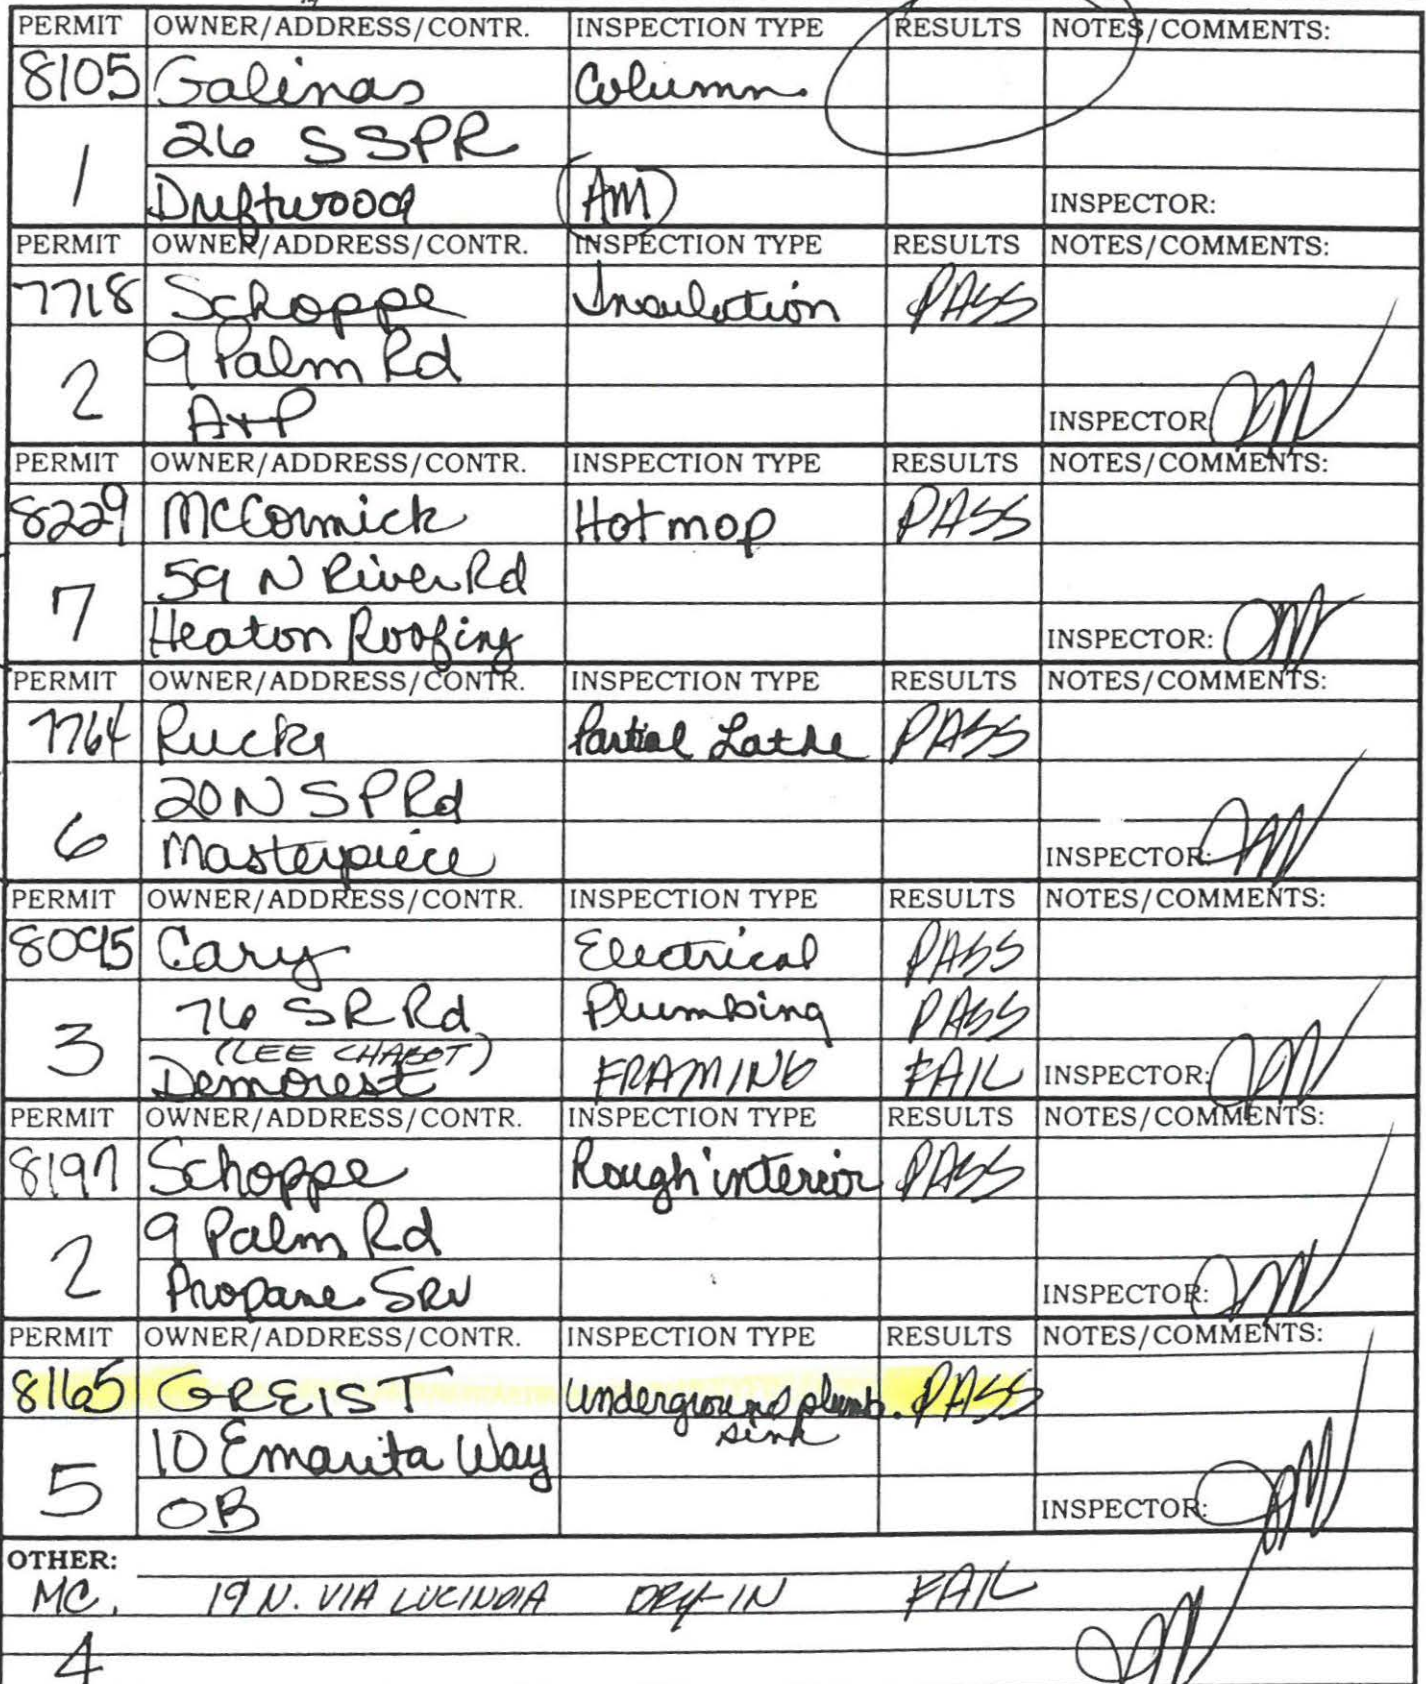 PERMIT OWNER/ADDRESS/CONTR. INSPECTION TYPE RESULTS NOTES/COMMENTS:
8105 Galinas Column
26 S SPR
1
Driftwood AM INSPECTOR:
PERMIT OWNER/ADDRESS/CONTR. INSPECTION TYPE RESULTS NOTES/COMMENTS:
7718 Schoppe Insulation PASS
9 Palm Rd
2
A+P INSPECTOR
PERMIT OWNER/ADDRESS/CONTR. INSPECTION TYPE RESULTS NOTES/COMMENTS:
8229 McCormick Hot mop PASS
59 N River Rd
7
Heaton Roofing INSPECTOR:
PERMIT OWNER/ADDRESS/CONTR. INSPECTION TYPE RESULTS NOTES/COMMENTS:
7764 Rucks Partial Lathe PASS
20 N S P Rd
6
Masterpiece INSPECTOR:
PERMIT OWNER/ADDRESS/CONTR. INSPECTION TYPE RESULTS NOTES/COMMENTS:
8095 Cary Electrical PASS
76 S R Rd Plumbing PASS
3 (LEE CHABOT)
Demorest FRAMING FAIL INSPECTOR:
PERMIT OWNER/ADDRESS/CONTR. INSPECTION TYPE RESULTS NOTES/COMMENTS:
8197 Schoppe Rough interior PASS
9 Palm Rd
2
Propane Srv INSPECTOR:
PERMIT OWNER/ADDRESS/CONTR. INSPECTION TYPE RESULTS NOTES/COMMENTS:
8165 GREIST underground plumb. PASS
sink
10 Emarita Way
5
OB INSPECTOR:
OTHER:
MC. 19 N. VIA LUCINDIA DRY-IN FAIL
4